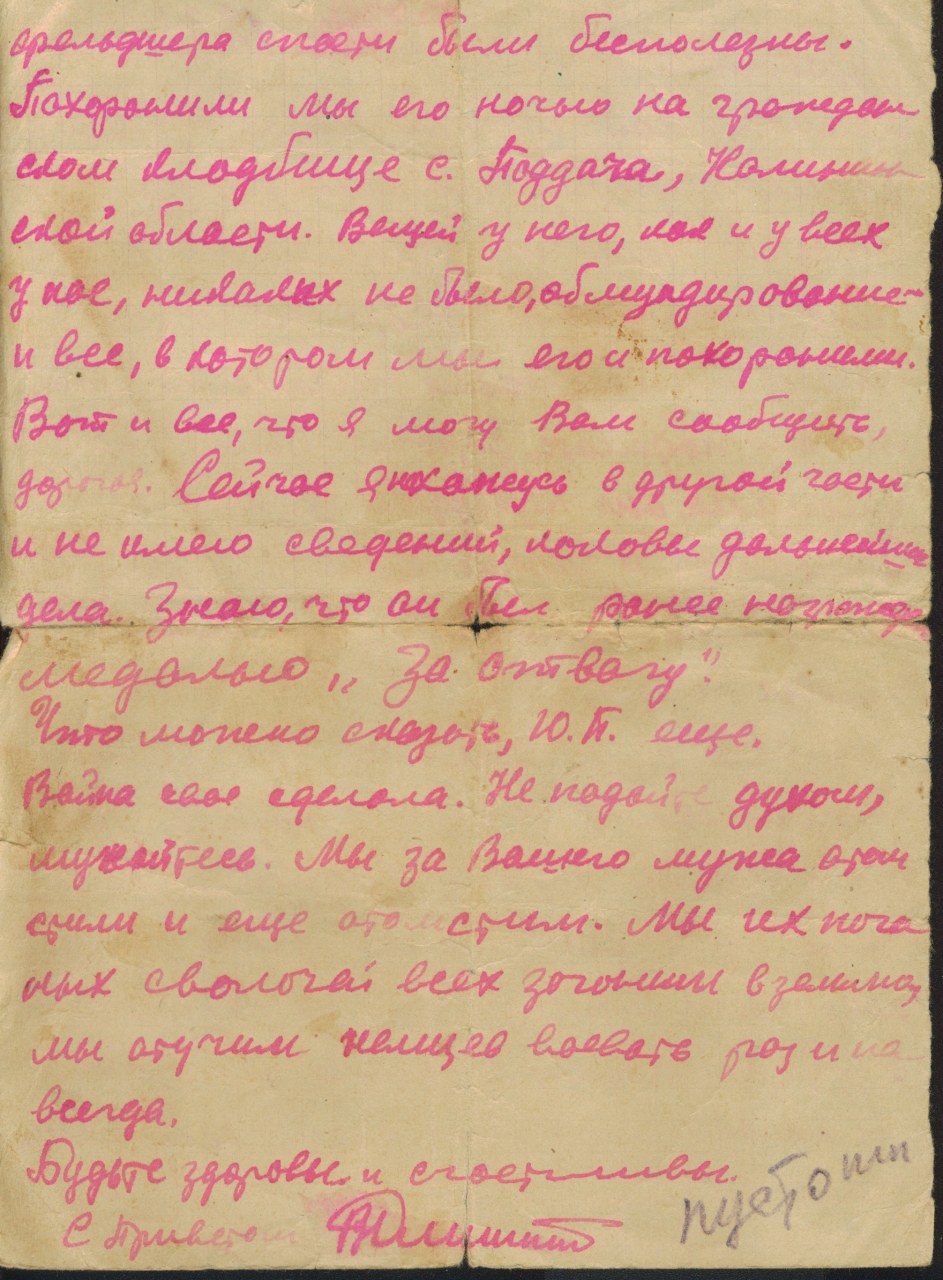 фельдшера спасти были бесполезны.
Похоронили мы его ночью на граждан
ском кладбище с. Поддача, Калинин
ской области. Вещей у него, как и у всех
у нас, никаких не было, обмундирование-
и все, в котором мы его и похоронили.
Вот и все, что я могу Вам сообщить,
дорогая. Сейчас я нахожусь в другой части
и не имею сведений, каковы дальнейшие
дела. Знаю, что он был ранее награжден
медалью „За отвагу".
Что можно сказать, Ю.П. еще.
Война свое сделала. Не падайте духом,
мужайтесь. Мы за Вашего мужа отом
стили и еще отомстим. Мы их пога
ных сволочей всех загоним в землю,
мы отучим немцев воевать раз и на
всегда.
Будьте здоровы и счастливы.
С Приветом
пустошки